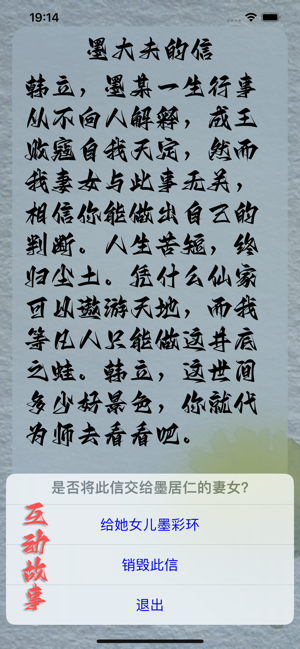 19:14
墨大夫的信
韩立，墨某一生行事
从不向人解释，成王
败寇自我天定，然而
我妻女与此事无关，
相信你能做出自己的
判断。人生苦短，终
归尘土。凭什么仙家
可以遨游天地，而我
等凡人只能做这井底
之蛙。韩立，这世间
多少好景色，你就代
为师去看看吧。
是否将此信交给墨居仁的妻女?
给她女儿墨彩环
销毁此信
退出
互动故事